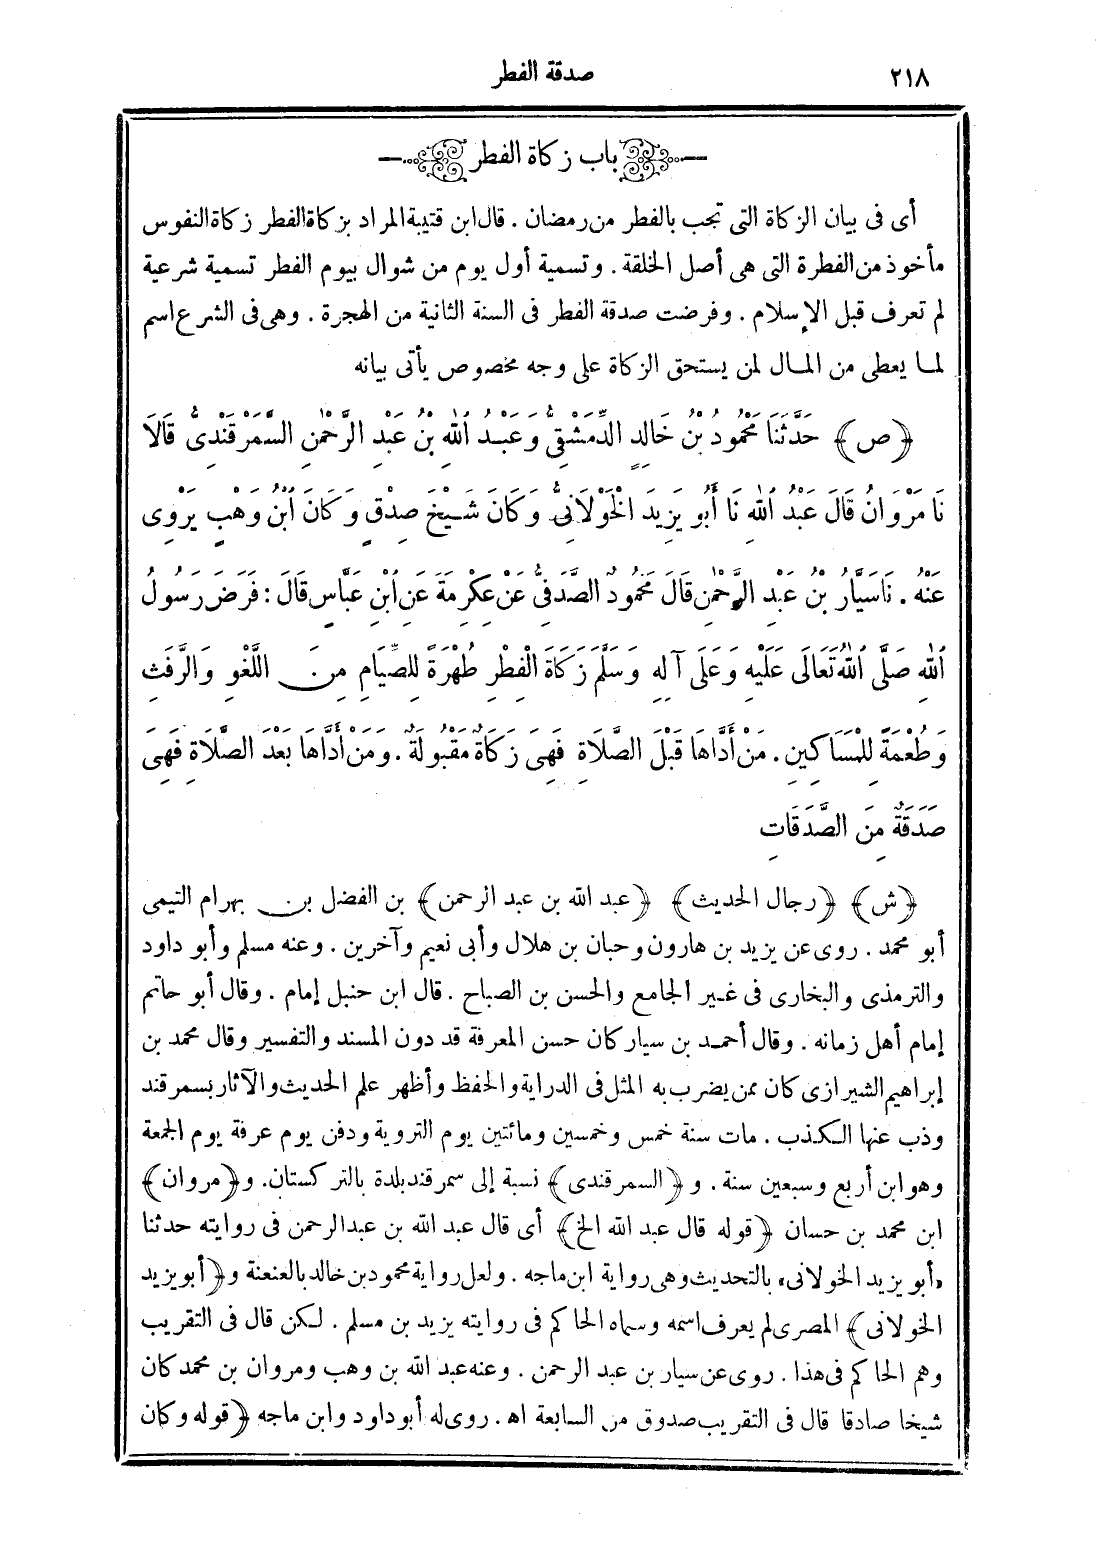 صدقة الفطر ٢١٨
باب زكاة الفطر
أى فى بيان الزكاة التى تجب بالفطر من رمضان . قال ابن قتيبة المراد بزكاة الفطر زكاة النفوس
مأخوذ من الفطرة التى هى أصل الخلقة . وتسمية أول يوم من شوال بيوم الفطر تسمية شرعية
لم تعرف قبل الإسلام . وفرضت صدقة الفطر فى السنة الثانية من الهجرة . وهى فى الشرع اسم
لما يعطى من المال لمن يستحق الزكاة على وجه مخصوص يأتى بيانه
﴿ص﴾ حَدَّثَنَا مَحْمُودُ بْنُ خَالِدٍ الدِّمَشْقِىُّ وَعَبْدُ اللهِ بْنُ عَبْدِ الرَّحْمٰنِ السَّمَرْقَنْدِىُّ قَالَا
نَا مَرْوَانُ قَالَ عَبْدُ اللهِ نَا أَبُو يَزِيدَ الْخَوْلَانِىُّ وَكَانَ شَيْخَ صِدْقٍ وَكَانَ ابْنُ وَهْبٍ يَرْوِى
عَنْهُ . نَا سَيَّارُ بْنُ عَبْدِ الرَّحْمٰنِ قَالَ مَحْمُودٌ الصَّدَفِىُّ عَنْ عِكْرِمَةَ عَنِ ابْنِ عَبَّاسٍ قَالَ : فَرَضَ رَسُولُ
اللهِ صَلَّى اللهُ تَعَالَى عَلَيْهِ وَعَلَى آلِهِ وَسَلَّمَ زَكَاةَ الْفِطْرِ طُهْرَةً لِلصِّيَامِ مِنَ اللَّغْوِ وَالرَّفَثِ
وَطُعْمَةً لِلْمَسَاكِينِ . مَنْ أَدَّاهَا قَبْلَ الصَّلَاةِ فَهِىَ زَكَاةٌ مَقْبُولَةٌ . وَمَنْ أَدَّاهَا بَعْدَ الصَّلَاةِ فَهِىَ
صَدَقَةٌ مِنَ الصَّدَقَاتِ
﴿ش﴾ ﴿رجال الحديث﴾ ﴿عبد الله بن عبد الرحمن﴾ بن الفضل بن بهرام التيمى
أبو محمد . روى عن يزيد بن هارون وحبان بن هلال وأبى نعيم وآخرين . وعنه مسلم وأبو داود
والترمذى والبخارى فى غير الجامع والحسن بن الصباح . قال ابن حنبل إمام . وقال أبو حاتم
إمام أهل زمانه . وقال أحمد بن سيار كان حسن المعرفة قد دون المسند والتفسير وقال محمد بن
إبراهيم الشيرازى كان ممن يضرب به المثل فى الدراية والحفظ وأظهر علم الحديث والآثار بسمرقند
وذب عنها الكذب . مات سنة خمس وخمسين ومائتين يوم التروية ودفن يوم عرفة يوم الجمعة
وهو ابن أربع وسبعين سنة . و ﴿السمرقندى﴾ نسبة إلى سمرقند بلدة بالتركستان. و﴿مروان﴾
ابن محمد بن حسان ﴿قوله قال عبد الله الخ﴾ أى قال عبد الله بن عبد الرحمن فى روايته حدثنا
«أبو يزيد الخولانى» بالتحديث وهى رواية ابن ماجه . ولعل رواية محمود بن خالد بالعنعنة و﴿أبو يزيد
الخولانى﴾ المصرى لم يعرف اسمه وسماه الحاكم فى روايته يزيد بن مسلم . لكن قال فى التقريب
وهم الحاكم فى هذا . روى عن سيار بن عبد الرحمن . وعنه عبد الله بن وهب ومروان بن محمد كان
شيخا صادقا قال فى التقريب صدوق من السابعة اه . روى له أبو داود وابن ماجه ﴿قوله وكان